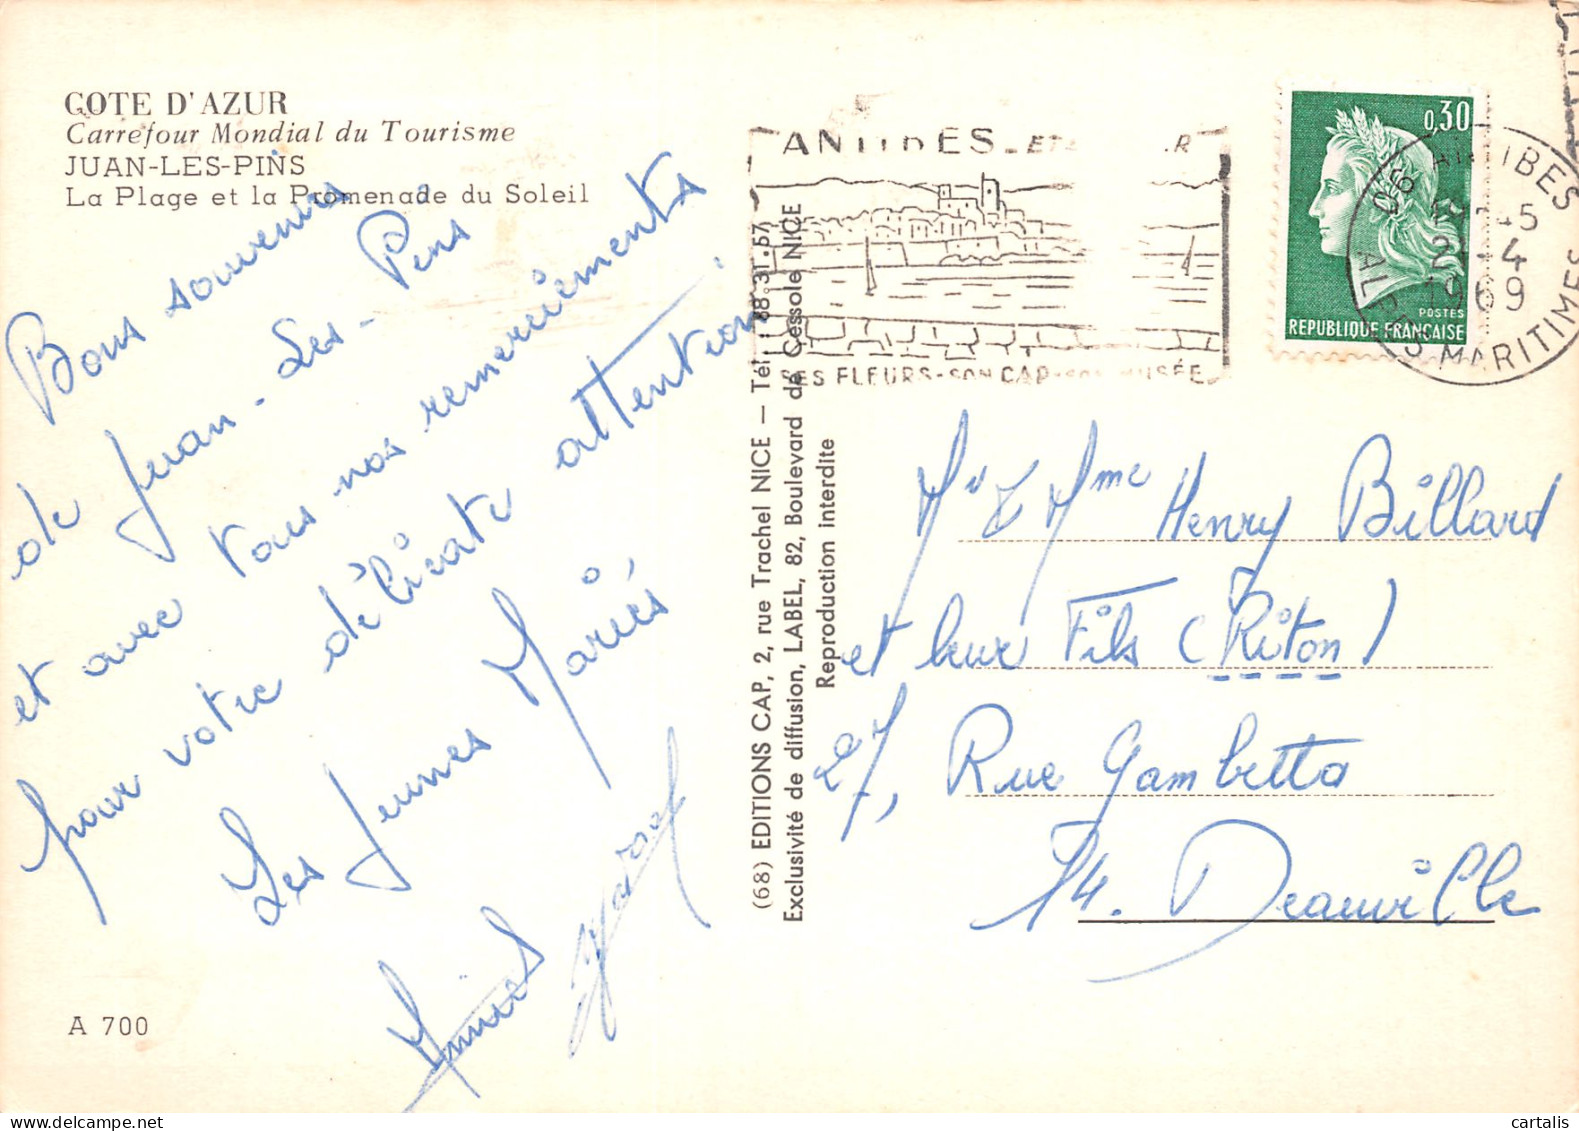 COTE D'AZUR
Carrefour Mondial du Tourisme
JUAN-LES-PINS
La Plage et la Promenade du Soleil
Bons souvenirs
de Juan-Les-Pins
et avec tous nos remerciements
pour votre délicate attention.
Les Jeunes Mariés
A 700
(68) EDITIONS CAP, 2, rue Trachel NICE — Tél. : 88.31.57
Exclusivité de diffusion, LABEL, 82, Boulevard de Cessole NICE
Reproduction interdite
ANTIBES
ES FLEURS - SON CAP - SON MUSÉE
0,30
POSTES
REPUBLIQUE FRANÇAISE
ANTIBES
1969
ALPES MARITIMES
Mr & Mme Henry Billard
et leur Fils (Riton)
27, Rue Gambetta
14. Deauville
cartalis